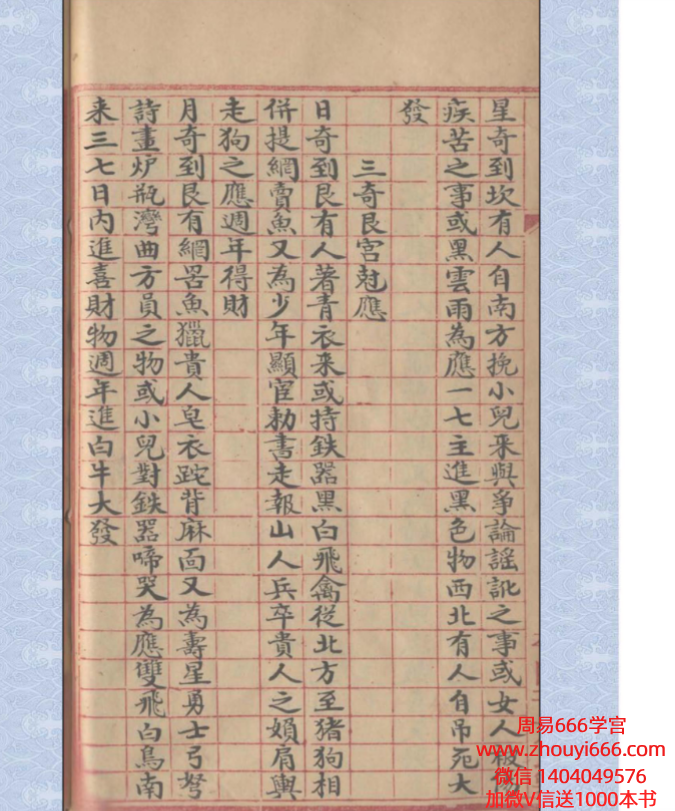 星奇到坎有人自南方挽小兒來與爭論謡訛之事或女人报
疾苦之事或黑雲雨為應一七主進黑色物西北有人自吊死大
發
三奇艮宮尅應
日奇到艮有人著青衣来或持鉄器黑白飛禽從北方至猪狗相
併提網賣魚又為少年顯宦勅書走報山人兵卒貴人之嬪肩輿
走狗之應週年得財
月奇到艮有網罟魚獵貴人皂衣跎背麻面又為壽星勇士弓弩
詩畫炉瓶灣曲方員之物或小兒對鉄器啼哭為應雙飛白鳥南
来三七日內進喜財物週年進白牛大發
周易666学宫
www.zhouyi666.com
微信 1404049576
加微V信送1000本书